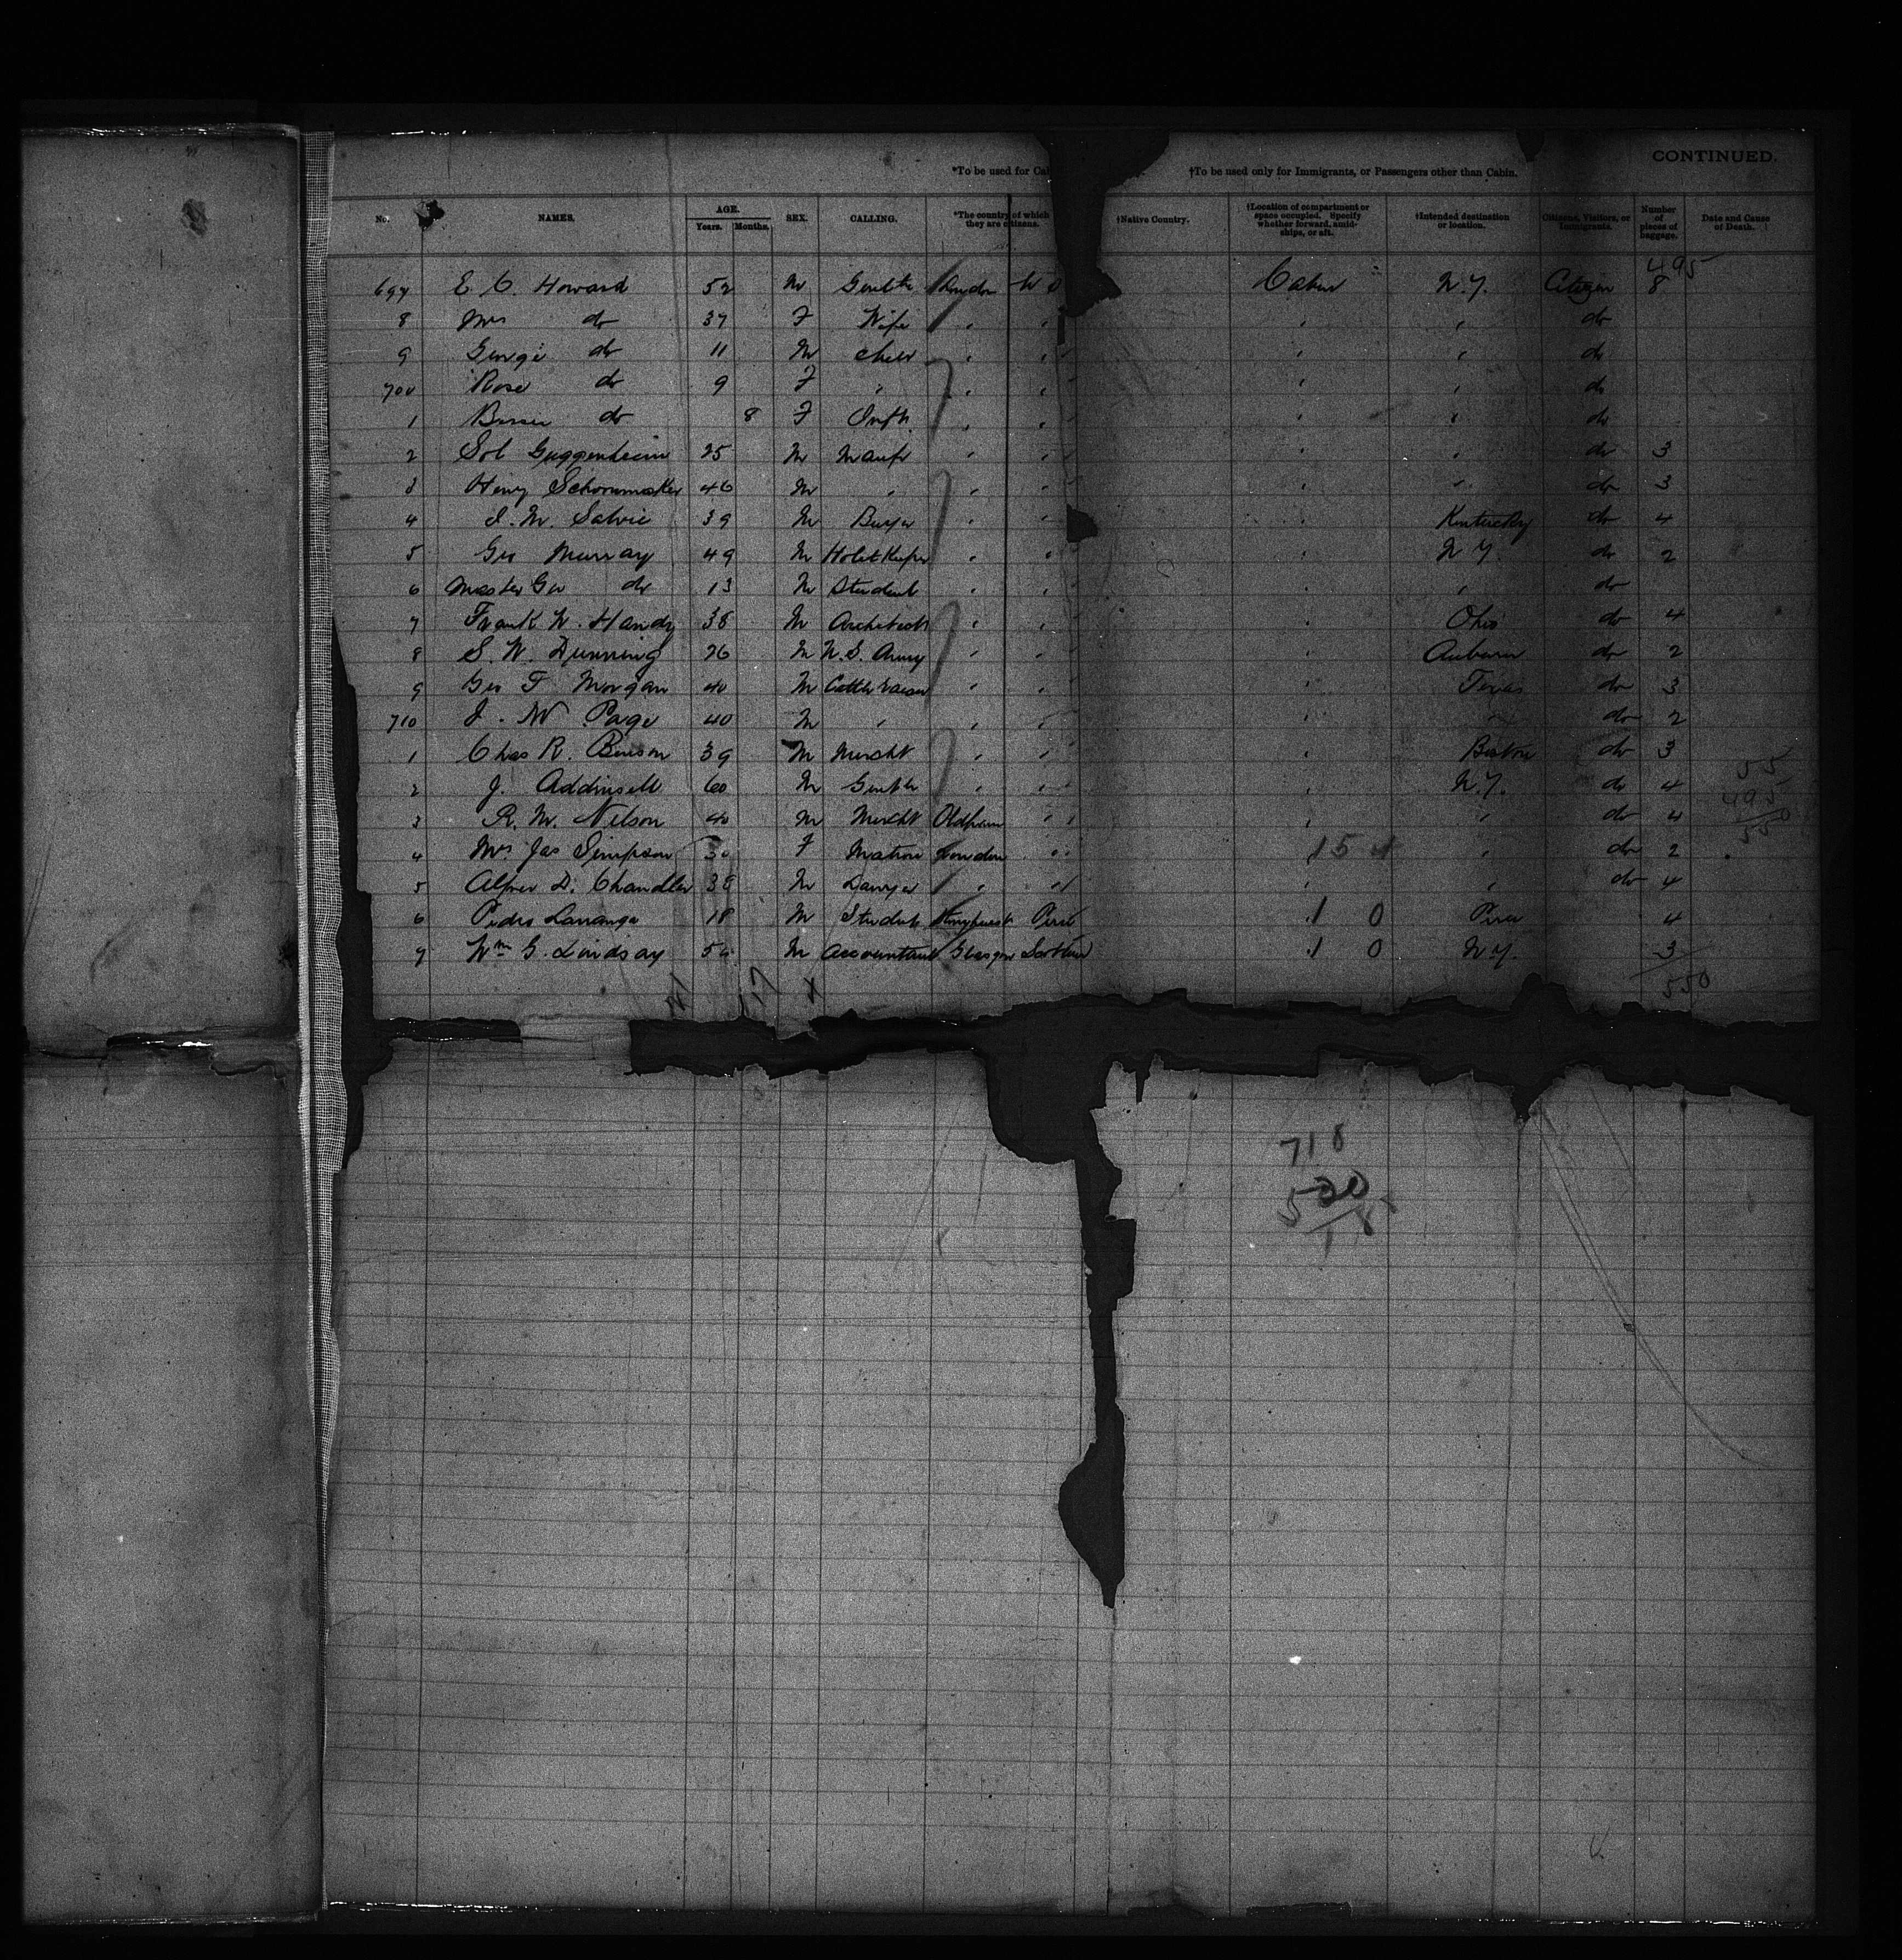 CONTINUED.
*To be used for Cab †To be used only for Immigrants, or Passengers other than Cabin.
No. NAMES. AGE. Years. Months. SEX. CALLING. *The country of which they are citizens. †Native Country. †Location of compartment or space occupied. Specify whether forward, amidships, or aft. †Intended destination or location. Citizens, Visitors, or Immigrants. Number of pieces of baggage. Date and Cause of Death.
495
697 E. C. Howard 52 M London Cabin N.Y. Citizen 8
8 Mrs do 37 F Wife " " " " do
9 George do 11 M Child " " " " do
700 Rose do 9 F " " " " " do
1 do 8 F Inft " " " " do
2 Sol Guggenheim 25 M Manfr " " " " do 3
3 Henry Schoonmaker 46 M " " " " " do 3
4 39 M Buyer " " " Kentucky do 4
5 Geo Murray 49 M Hotel Keeper " " " N.Y. do 2
6 Master Geo do 13 M Student " " " " do
7 Frank W. Handy 38 M Architect " " " Ohio do 4
8 S. W. Dunning 26 M U.S. Army " " " Auburn do 2
9 Geo F Morgan 40 M " " " Texas do 3
710 J. W. Page 40 M " " " " " do 2
1 Chas R. Benson 39 M Mercht " " " Boston do 3
55
2 J. Addinsell 60 M " " " N.Y. do 4
495
3 R. M. Nelson 40 M Mercht Oldham " " " do 4
550
4 Mrs Jas Simpson 30 F Matron London " " do 2
5 Alfred D. Chandler 38 M Lawyer " " " " do 4
6 Pedro Larranga 18 M Student Peru 1 0 Peru 4
7 Wm G. Lindsay M Accountant Glasgow Scotland 1 0 N.Y. 3
17 550
718